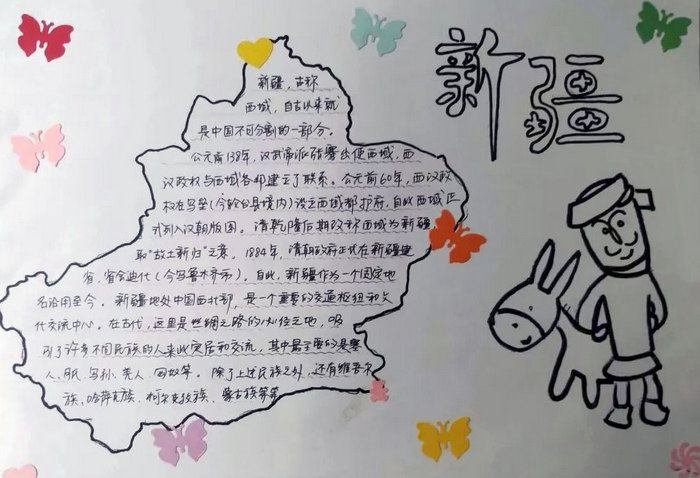 新疆
新疆,古称
西域,自古以来就
是中国不可分割的一部分。
公元前138年,汉武帝派张骞出使西域,西
汉政权与西域各部建立了联系。公元前60年,西汉政
权在乌垒(今轮台县境内)设立西域都护府,自此西域正
式列入汉朝版图。清乾隆后期改称西域为新疆
取"故土新归"之意。1884年,清朝政府正式在新疆建
省,省会迪化(今乌鲁木齐市)。自此,新疆作为一个固定地
名沿用至今。新疆地处中国西北部,是一个重要的交通枢纽和文
化交流中心。在古代,这里是丝绸之路的必经之地,吸
引了许多不同民族的人来此定居和交流,其中最主要的是塞
人、月氏、乌孙、羌人、匈奴等。除了上述民族之外,还有维吾尔
族、哈萨克族、柯尔克孜族、蒙古族等等